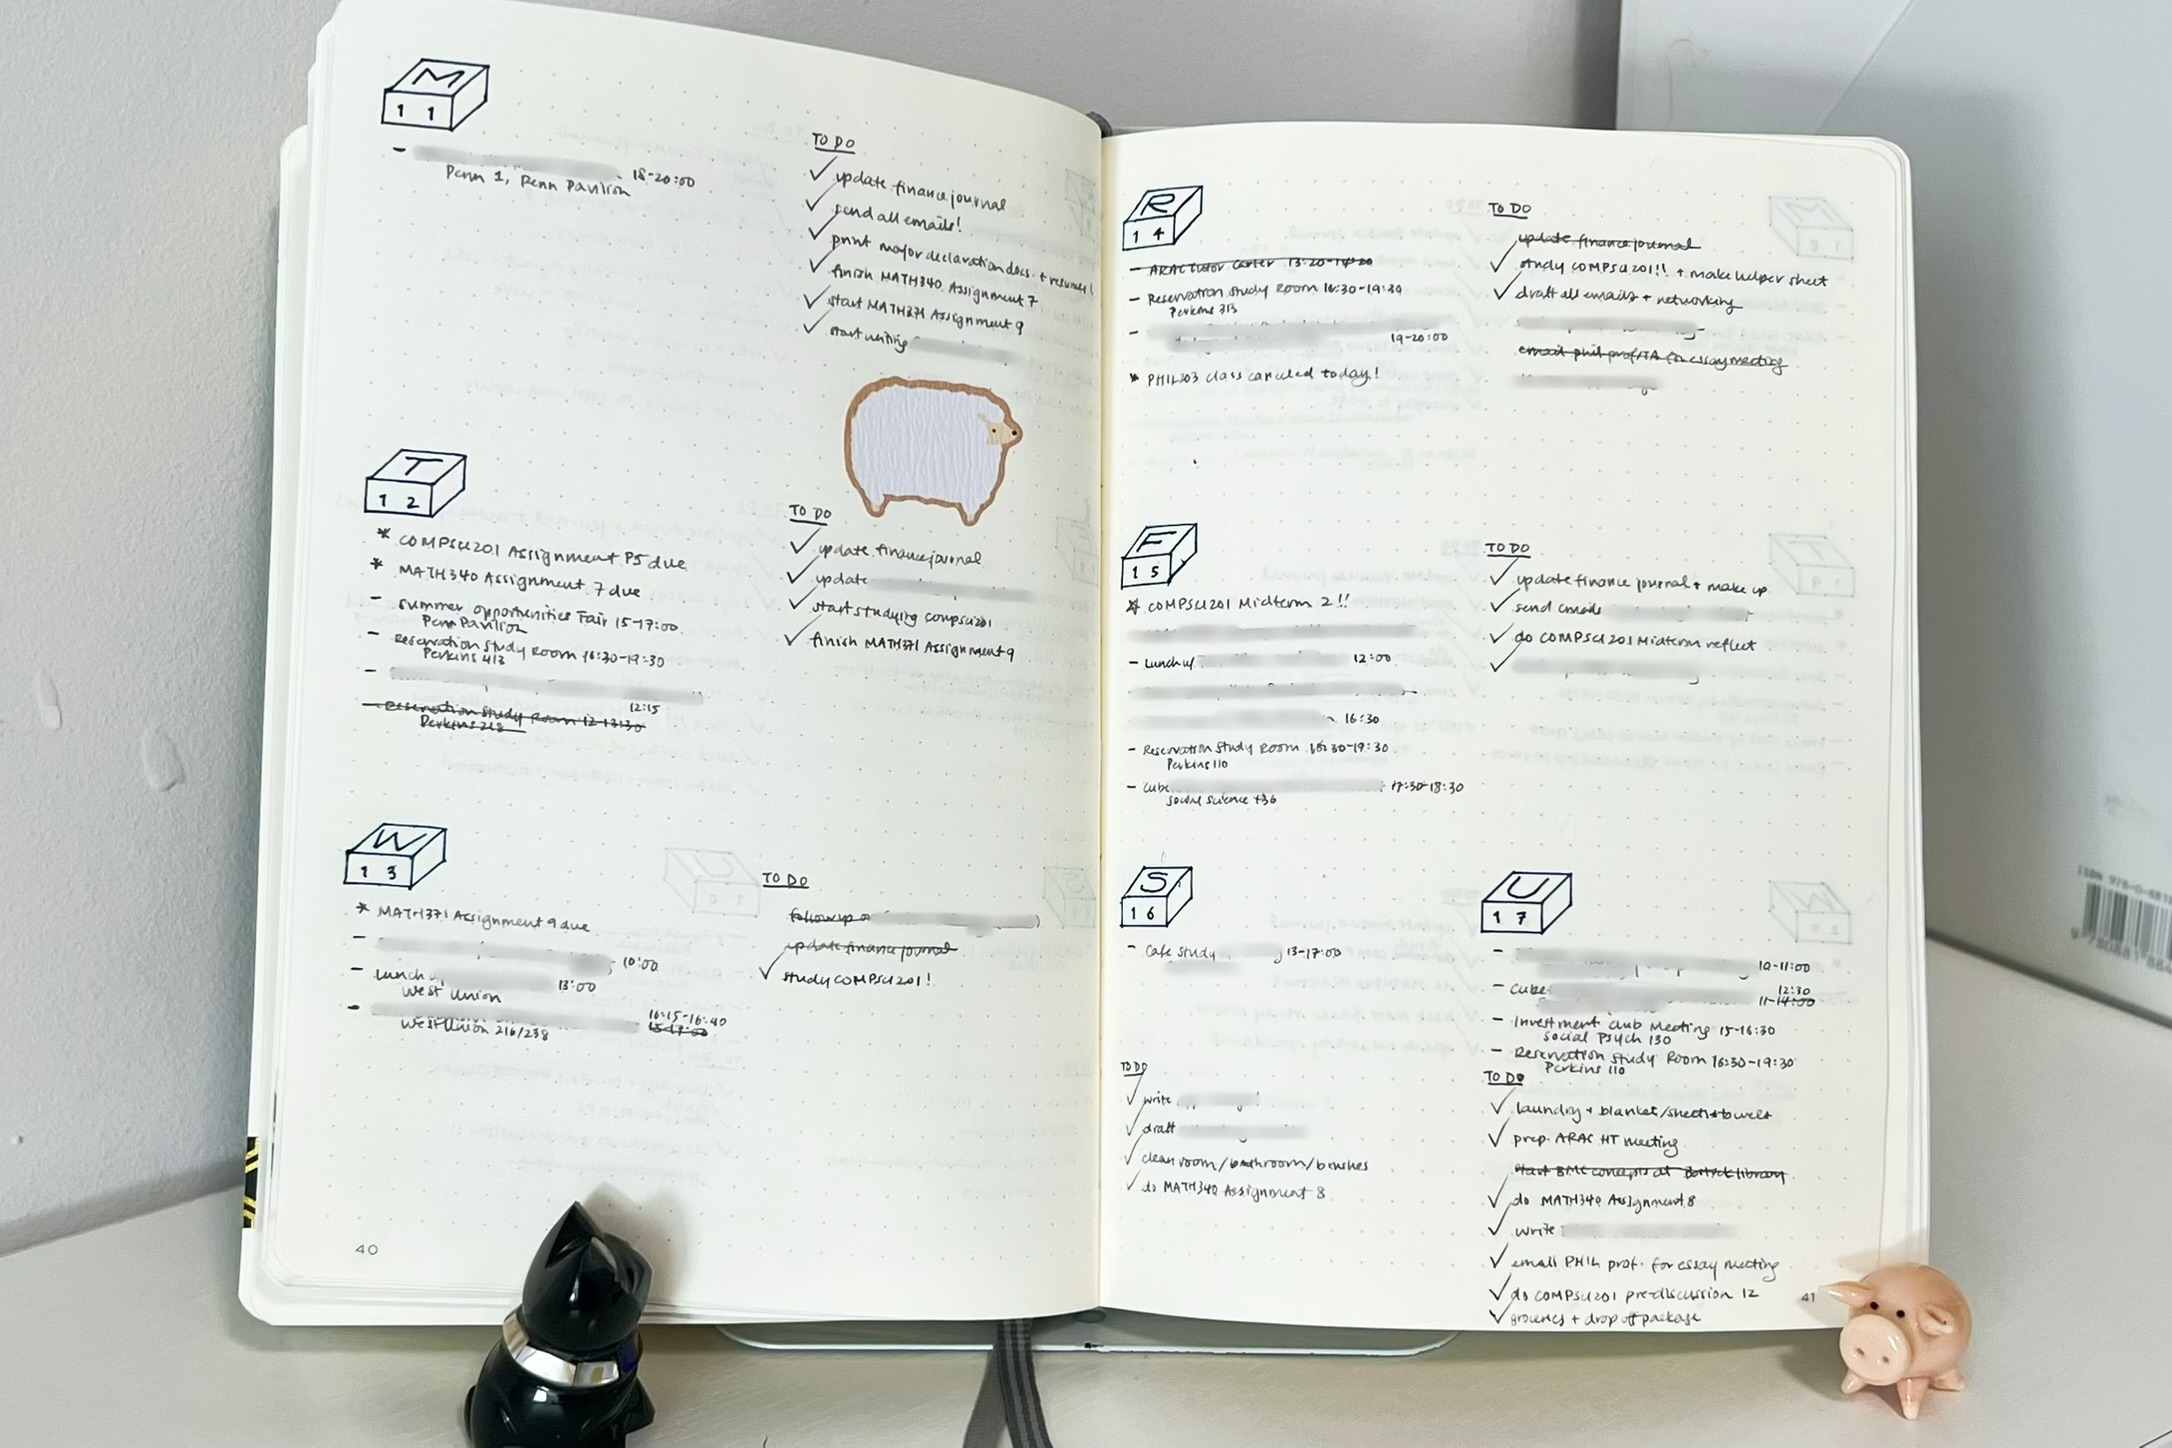 M
11
-
18-20:00
Penn 1, Penn Pavilion
TO DO
✓ update finance journal
✓ send all emails!
✓ print major declaration docs. + resumes!
✓ finish MATH340 Assignment 7
✓ start MATH371 Assignment 9
✓ start writing
T
12
* COMPSCI201 Assignment P5 due
* MATH340 Assignment 7 due
- Summer opportunities Fair 15-17:00
Penn Pavilion
- Reservation Study Room 16:30-19:30
Perkins 413
-
12:15
- Reservation Study Room 12-13:30
Perkins 218
TO DO
✓ update finance journal
✓ update
✓ start studying compsci201
✓ finish MATH371 Assignment 9
W
13
* MATH371 Assignment 9 due
- 10:00
- Lunch 13:00
West Union
- 16:15-16:40
West Union 216/238
TO DO
follow up
update finance journal
✓ study COMPSCI201!
40
R
14
- ARAC Tutor 13:20-14:20
- Reservation Study Room 16:30-19:30
Perkins 313
-
19-20:00
* PHIL203 class canceled today!
TO DO
update finance journal
✓ study COMPSCI201!! + make helper sheet
✓ draft all emails + networking
email phil prof/TA for essay meeting
F
15
* COMPSCI201 Midterm 2!!
- Lunch w/ 12:00
16:30
- Reservation Study Room 16:30-19:30
Perkins 110
- Cube 17:30-18:30
Social Science 136
TO DO
✓ update finance journal + make up
✓ send emails
✓ do COMPSCI201 Midterm reflect
✓
S
16
- Cafe Study 13-17:00
TO DO
✓ write
✓ draft
✓ clean room/bathroom/brushes
✓ do MATH340 Assignment 8
U
17
- 10-11:00
- Cube 12:30
11-14:00
- Investment Club Meeting 15-16:30
Social Psych 130
- Reservation Study Room 16:30-19:30
Perkins 110
TO DO
✓ laundry + blanket/sheets+towels
✓ prep. ARAC HT meeting
start BME concepts at Bostock library
✓ do MATH340 Assignment 8
✓ write
✓ email PHIL prof. for essay meeting
✓ do COMPSCI201 pre-discussion 12
✓ groceries + drop off package
41